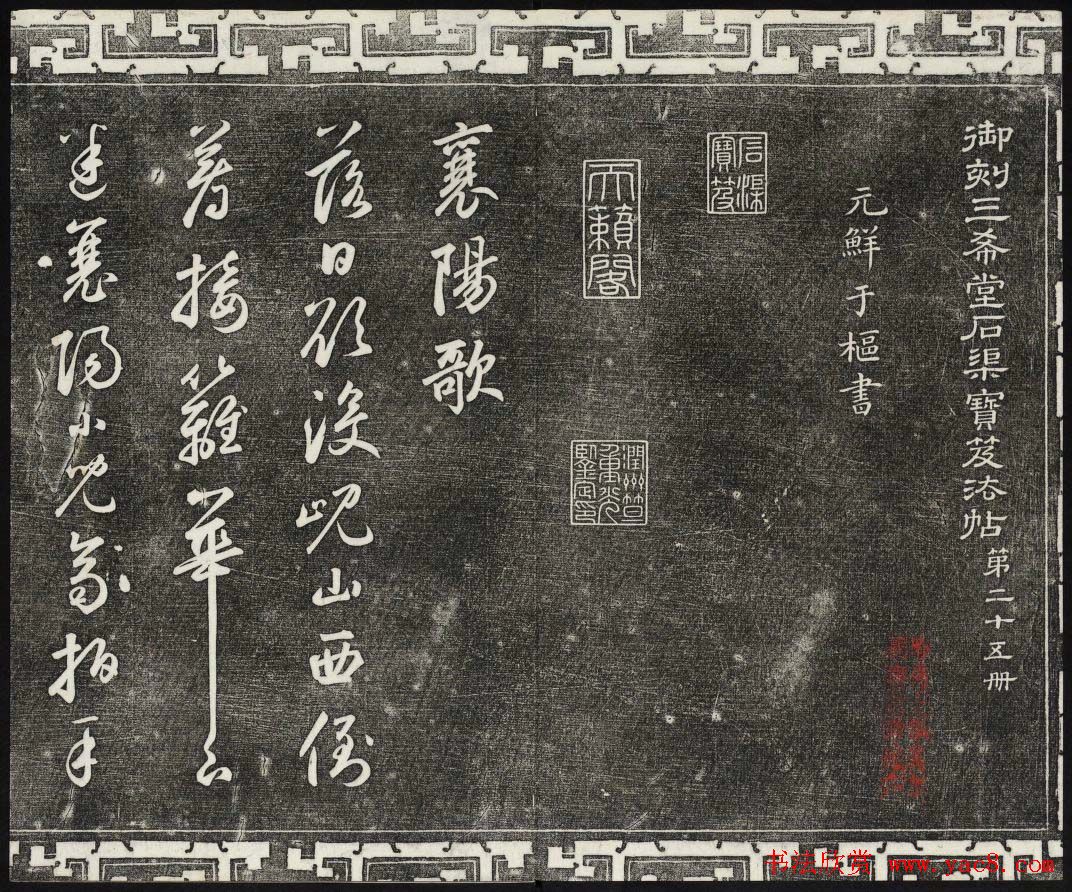 御刻三希堂石渠寶笈法帖 第二十五冊
元鮮于樞書
石渠寶笈
天籟閣
潤州笪重光鑒定印
襄陽歌
落日欲没峴山西倒
著接籬華下
迷襄陽小兒齊拍手
书法欣赏 www.yac8.com